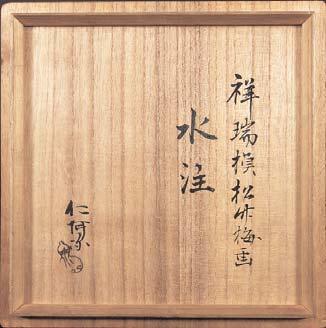 祥瑞模松竹梅画
水注
仁阿弥